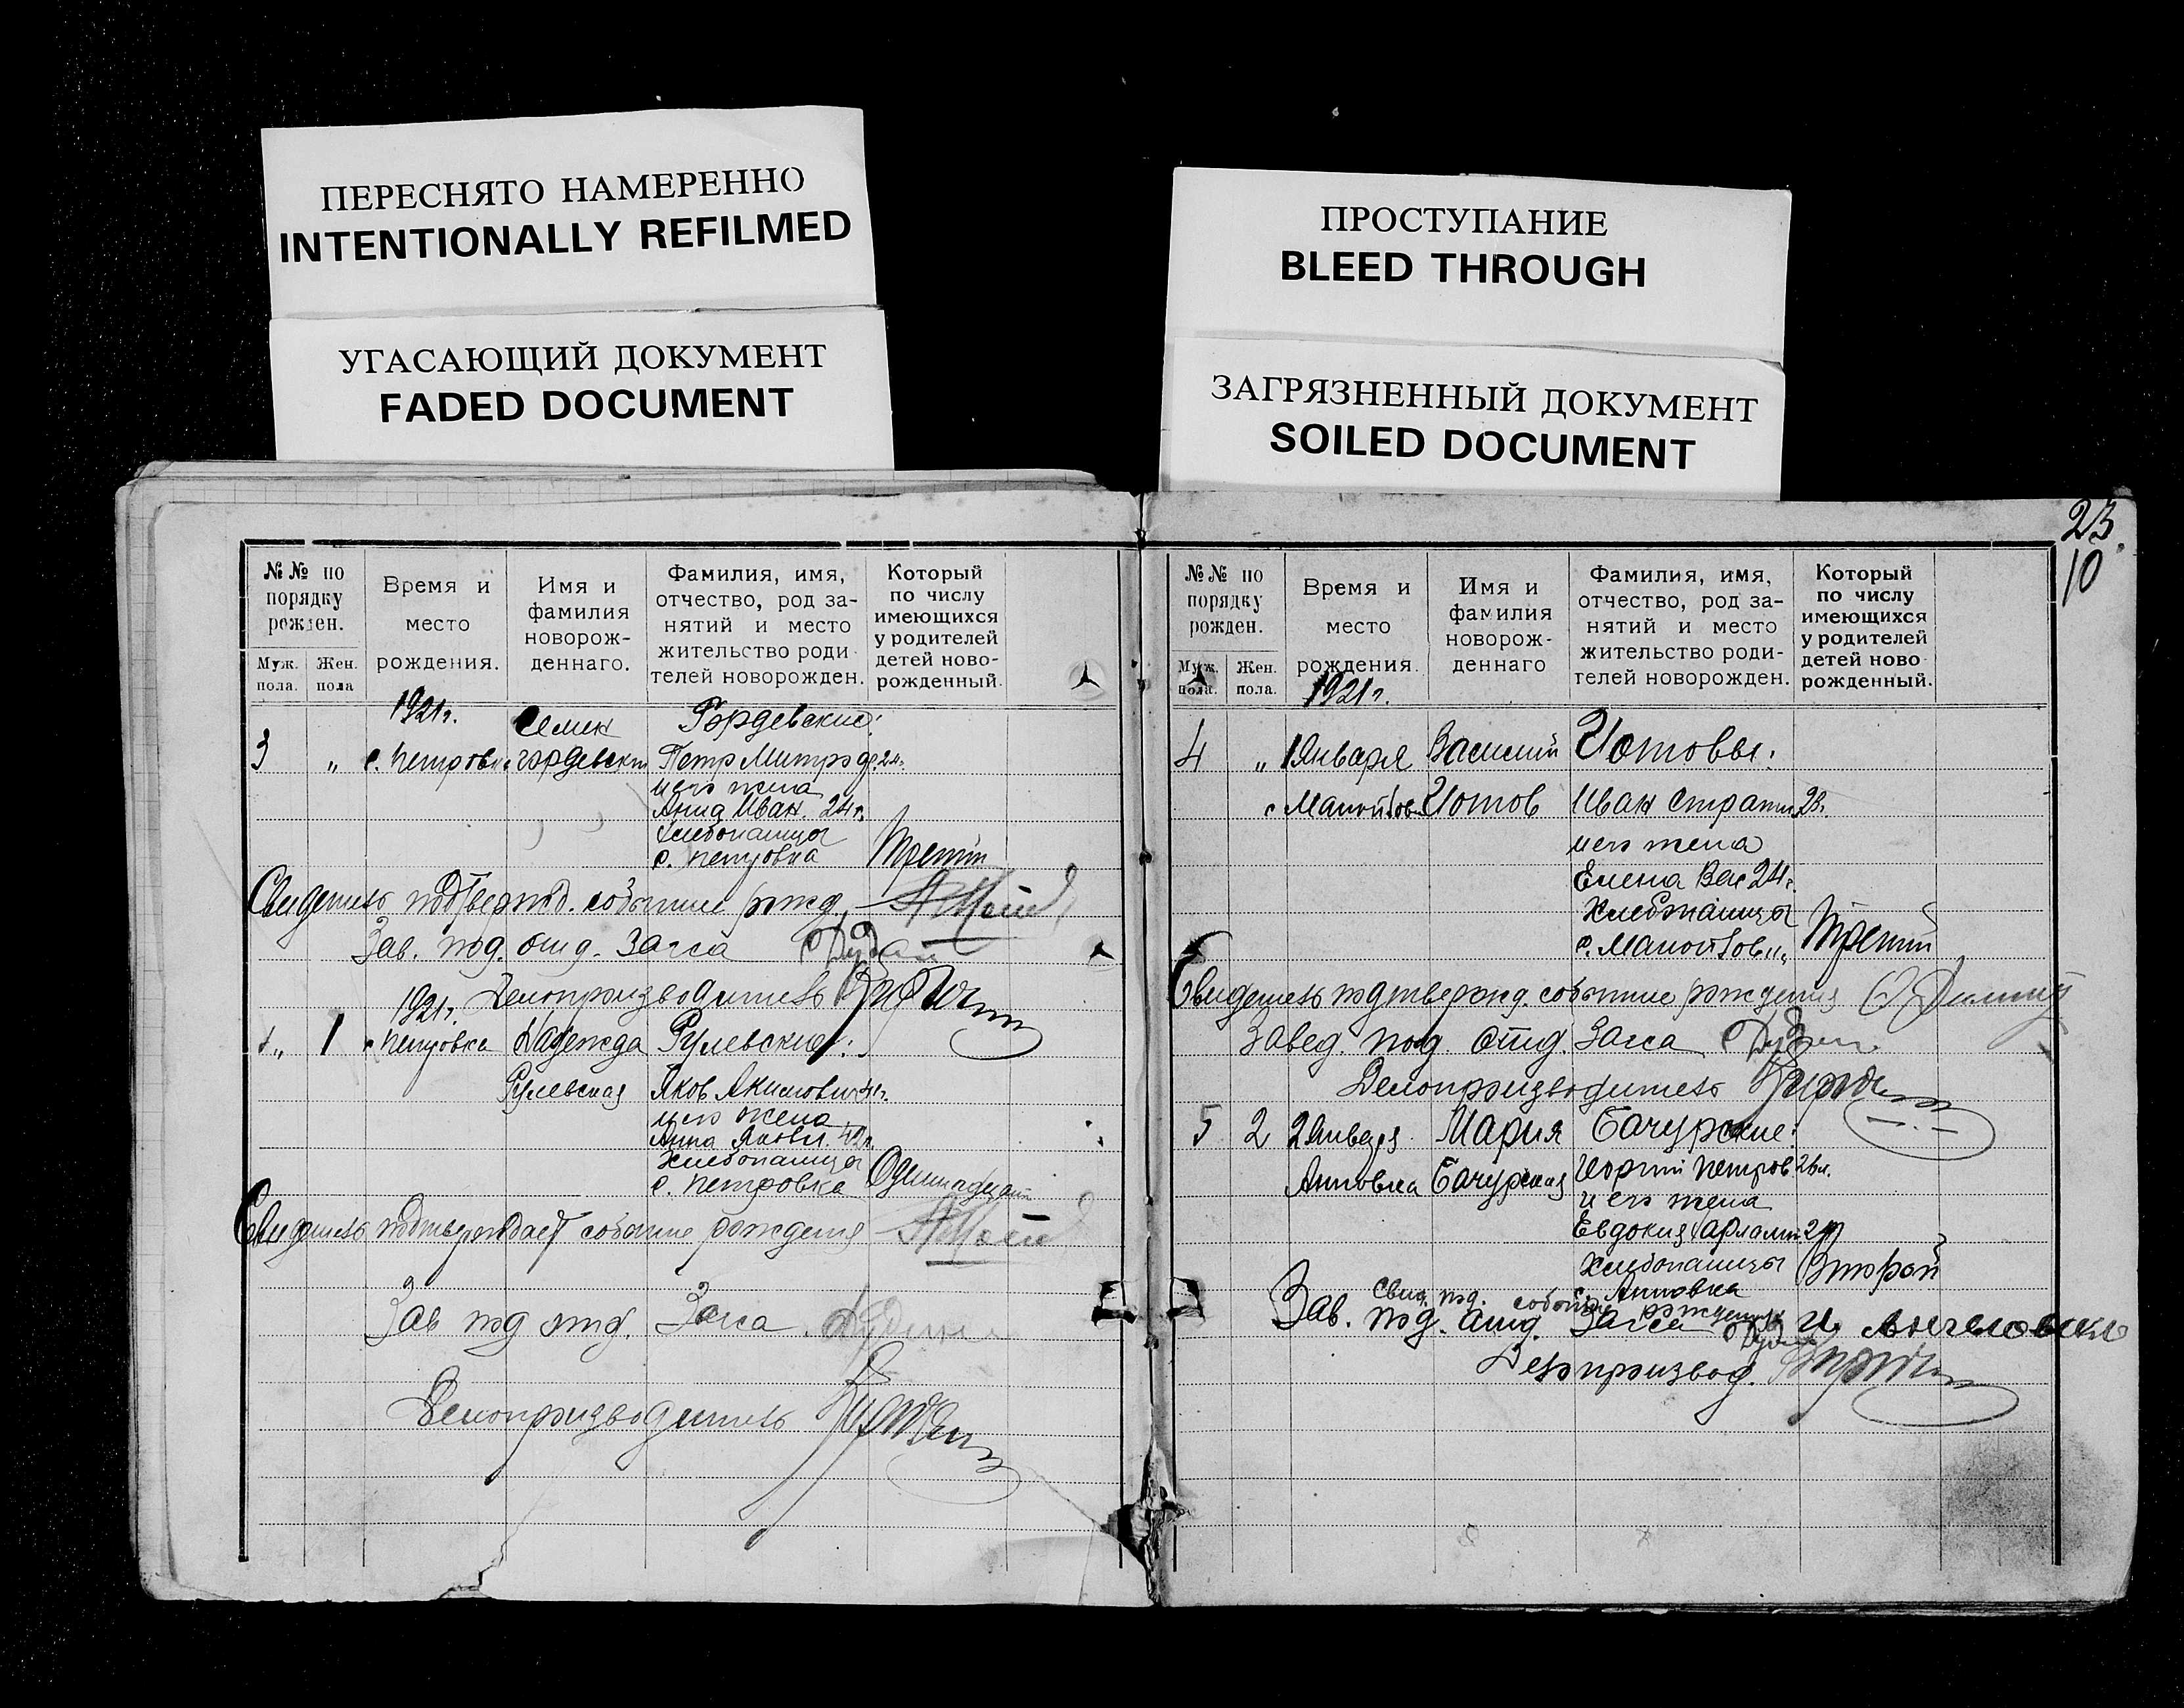 ПЕРЕСНЯТО НАМЕРЕННО
INTENTIONALLY REFILMED
УГАСАЮЩИЙ ДОКУМЕНТ
FADED DOCUMENT
ПРОСТУПАНИЕ
BLEED THROUGH
ЗАГРЯЗНЕННЫЙ ДОКУМЕНТ
SOILED DOCUMENT
№№ по
порядку
рожден.
Муж.
пола.
Жен.
пола
Время и
место
рождения.
Имя и
фамилия
новорож-
деннаго.
Фамилия, имя,
отчество, род за-
нятий и место
жительство роди
телей новорожден.
Который
по числу
имеющихся
у родителей
детей ново-
рожденный.
1921г.
3 „ с. Петровка
Семен
Гордевские:
Петр Митроф. 24г.
и его жена
Анна Иван. 24г.
Хлебопашцы
с. Петровка
Третий
Свидетель подтвержд. событие рожд.
Зав. под. отд. Загса
Делопроизводитель
1921г.
„ 1 с Петровка Надежда
Рулевская
Рулевские:
Яков Акимович
и его жена
Анна Яковл. 42г.
Хлебопашцы
с. Петровка
Одиннадцат
Свидетель подтверждает событие рождения
Зав под отд. Загса
Делопроизводитель
23
10
№№ по
порядку
рожден.
Муж.
пола.
Жен.
пола.
Время и
место
рождения.
Имя и
фамилия
новорож-
деннаго
Фамилия, имя,
отчество, род за-
нятий и место
жительство роди-
телей новорожден.
Который
по числу
имеющихся
у родителей
детей ново
рожденный.
1921г.
4 „ 1 Января Василий
Иотовы:
Иотов Иван
и его жена
Елена Вас 24г.
Хлебопашцы
Третий
Свидетель подтвержд. событие рождения
Завед. под. отд. Загса
Делопроизводитель
5 2 2 Января Мария Бачурские:
Анновка Бачурская Георгий Петров 26л.
и его жена
Евдокия
Хлебопашцы
с. Анновка
Второй
Свид. под. событие рождения
Зав. под. отд. Загса
Делопроизвод.